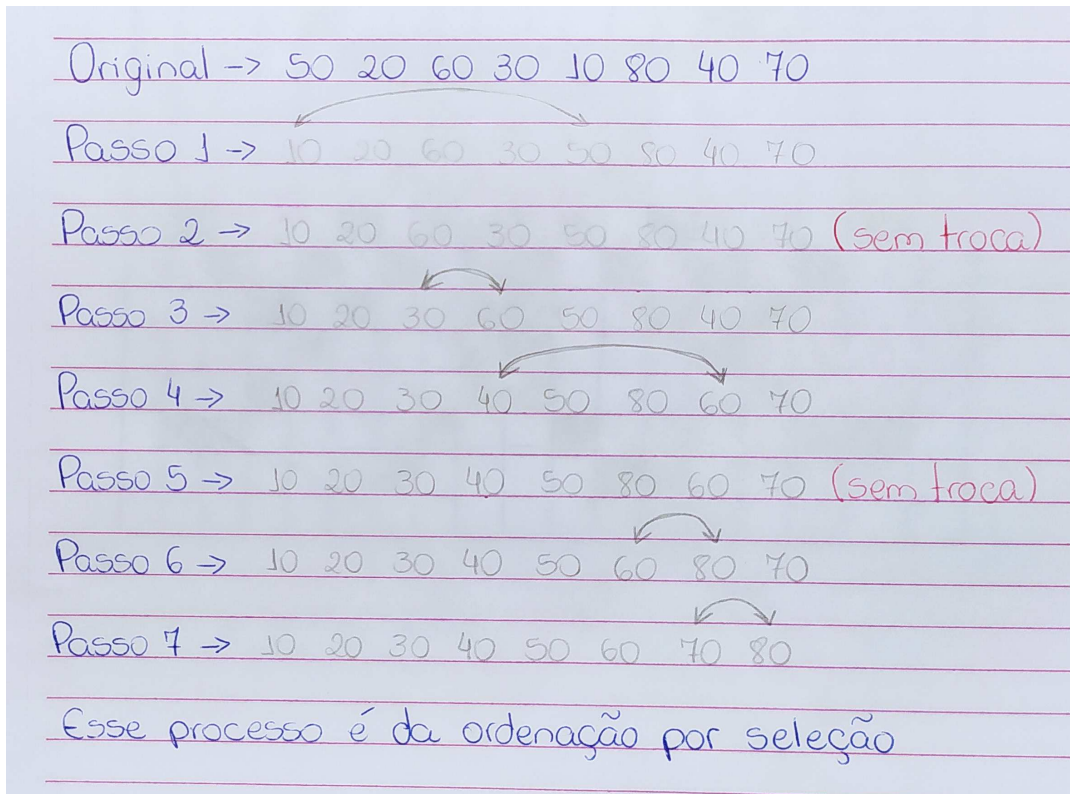 Original -> 50 20 60 30 10 80 40 70
Passo 1 -> 10 20 60 30 50 80 40 70
Passo 2 -> 10 20 60 30 50 80 40 70 (sem troca)
Passo 3 -> 10 20 30 60 50 80 40 70
Passo 4 -> 10 20 30 40 50 80 60 70
Passo 5 -> 10 20 30 40 50 80 60 70 (sem troca)
Passo 6 -> 10 20 30 40 50 60 80 70
Passo 7 -> 10 20 30 40 50 60 70 80
Esse processo é da ordenação por seleção